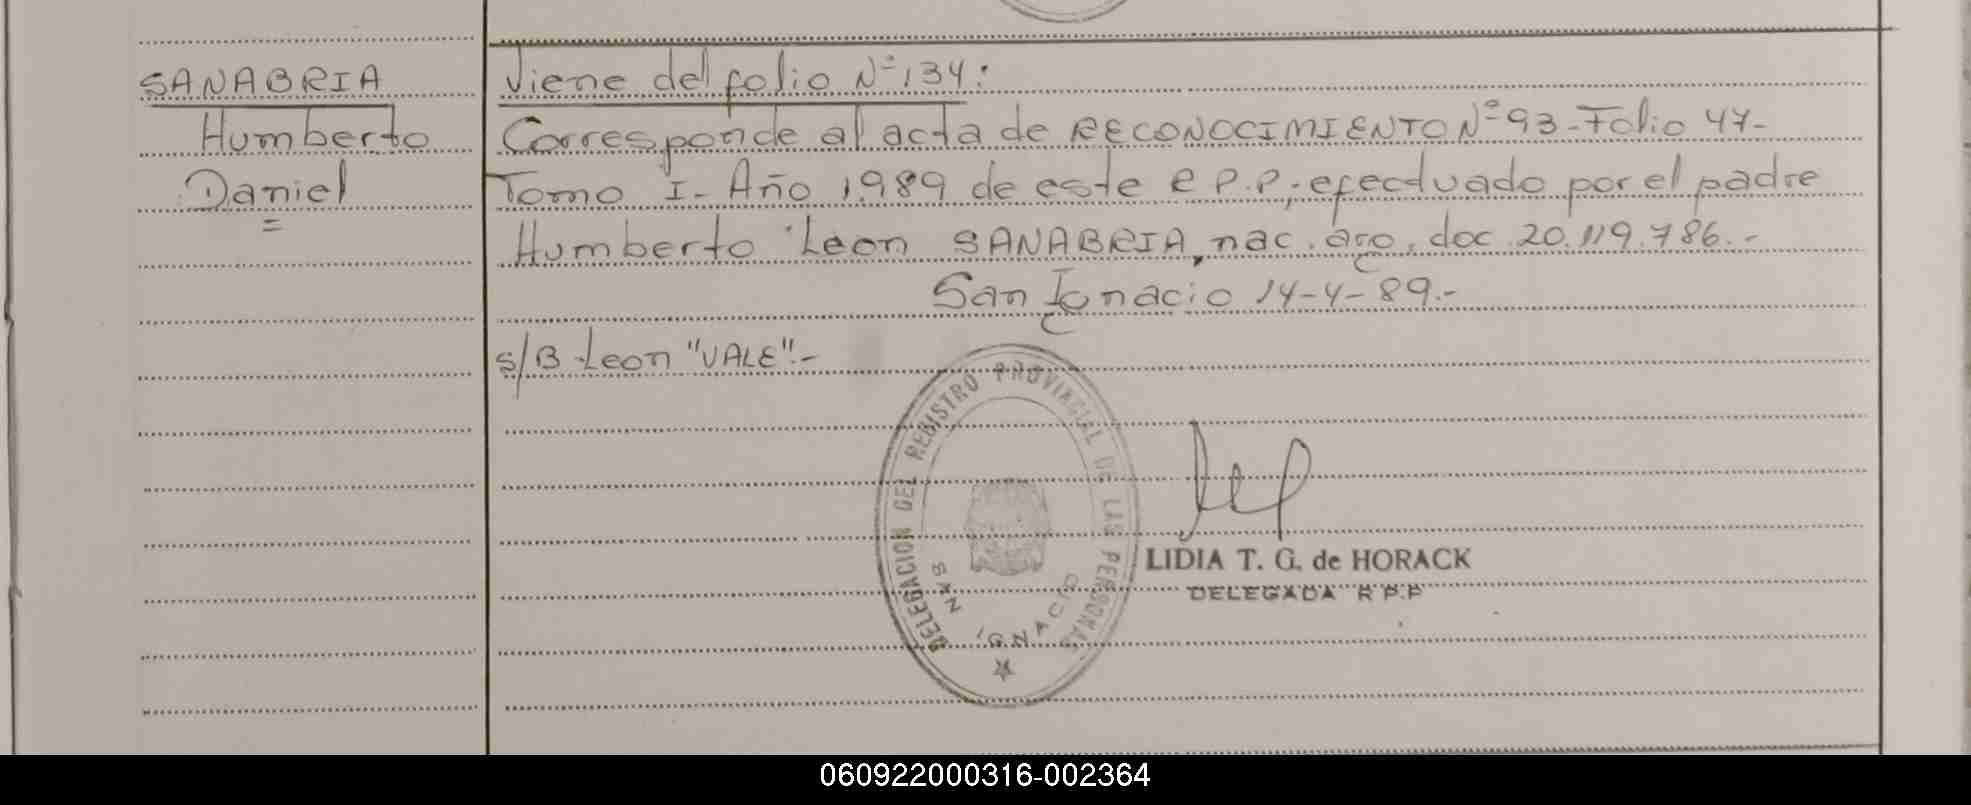 SANABRIA
Humberto
Daniel
=
Viene del folio Nº 134:
Corresponde al acta de RECONOCIMIENTO Nº 93 - Folio 47-
Tomo I - Año 1.989 de este R P.P, efectuado por el padre
Humberto Leon SANABRIA, nac. arg. doc 20.119.786.-
San Ignacio 14-4-89.-
s/B Leon "VALE".-
DELEGACION DEL REGISTRO PROVINCIAL DE LAS PERSONAS
SAN IGNACIO
LIDIA T. G. de HORACK
DELEGADA R P.P
060922000316-002364